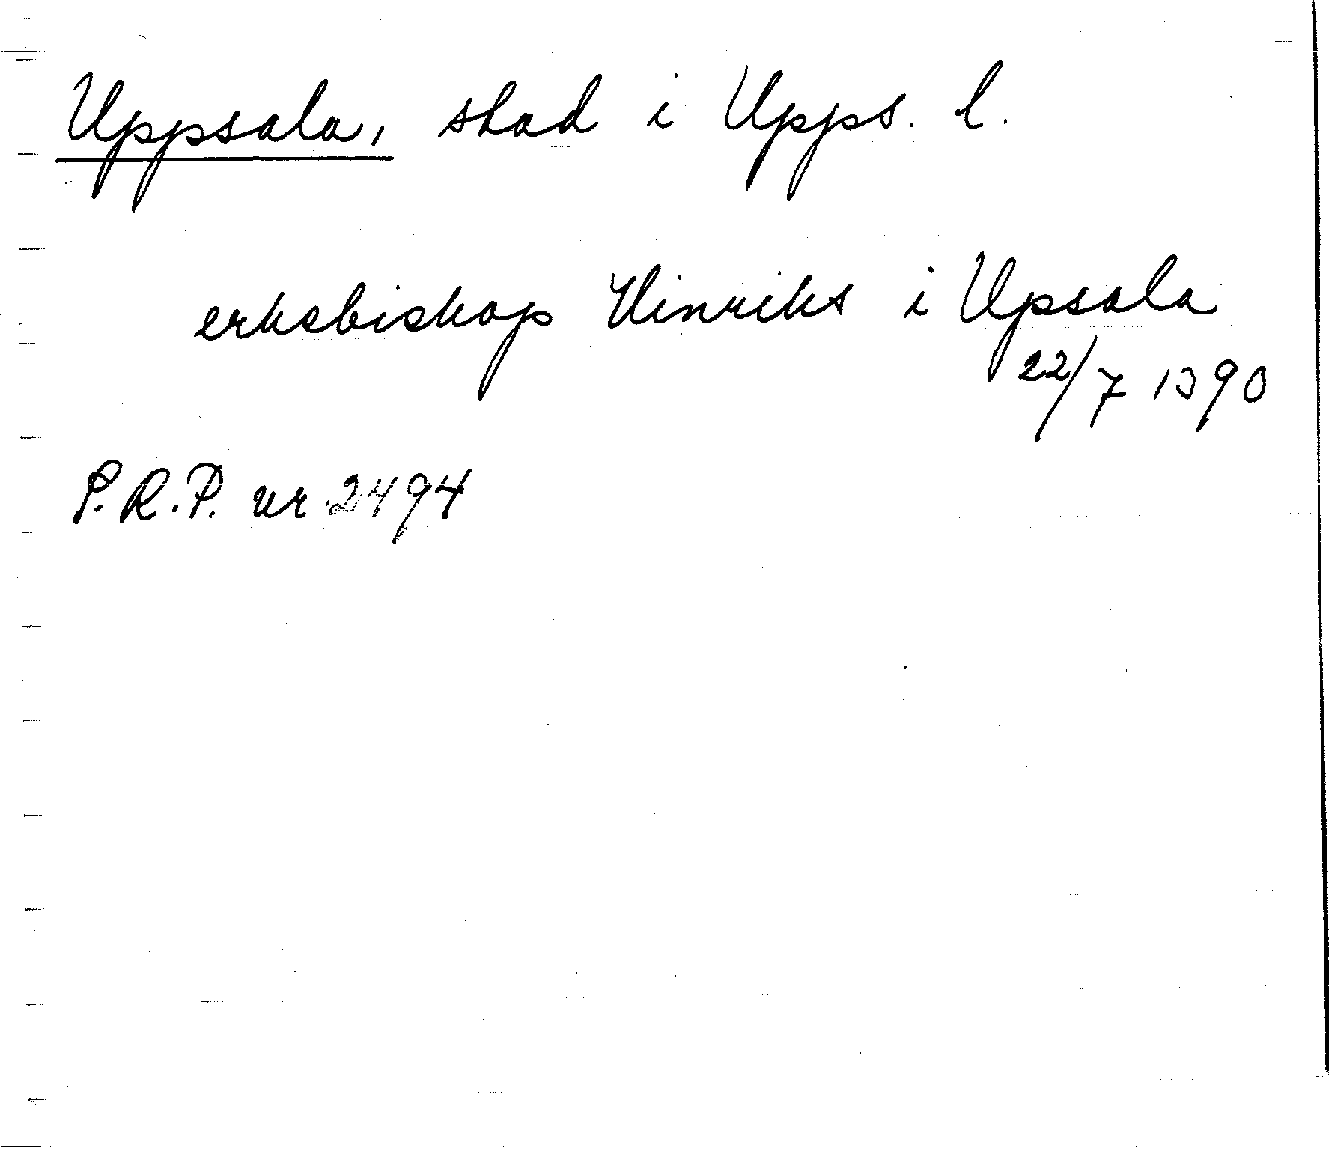 Uppsala, stad i Upps. l.
erkebiskop Hinriks i Upsala
22/7 1390
P.R.P. nr 2494